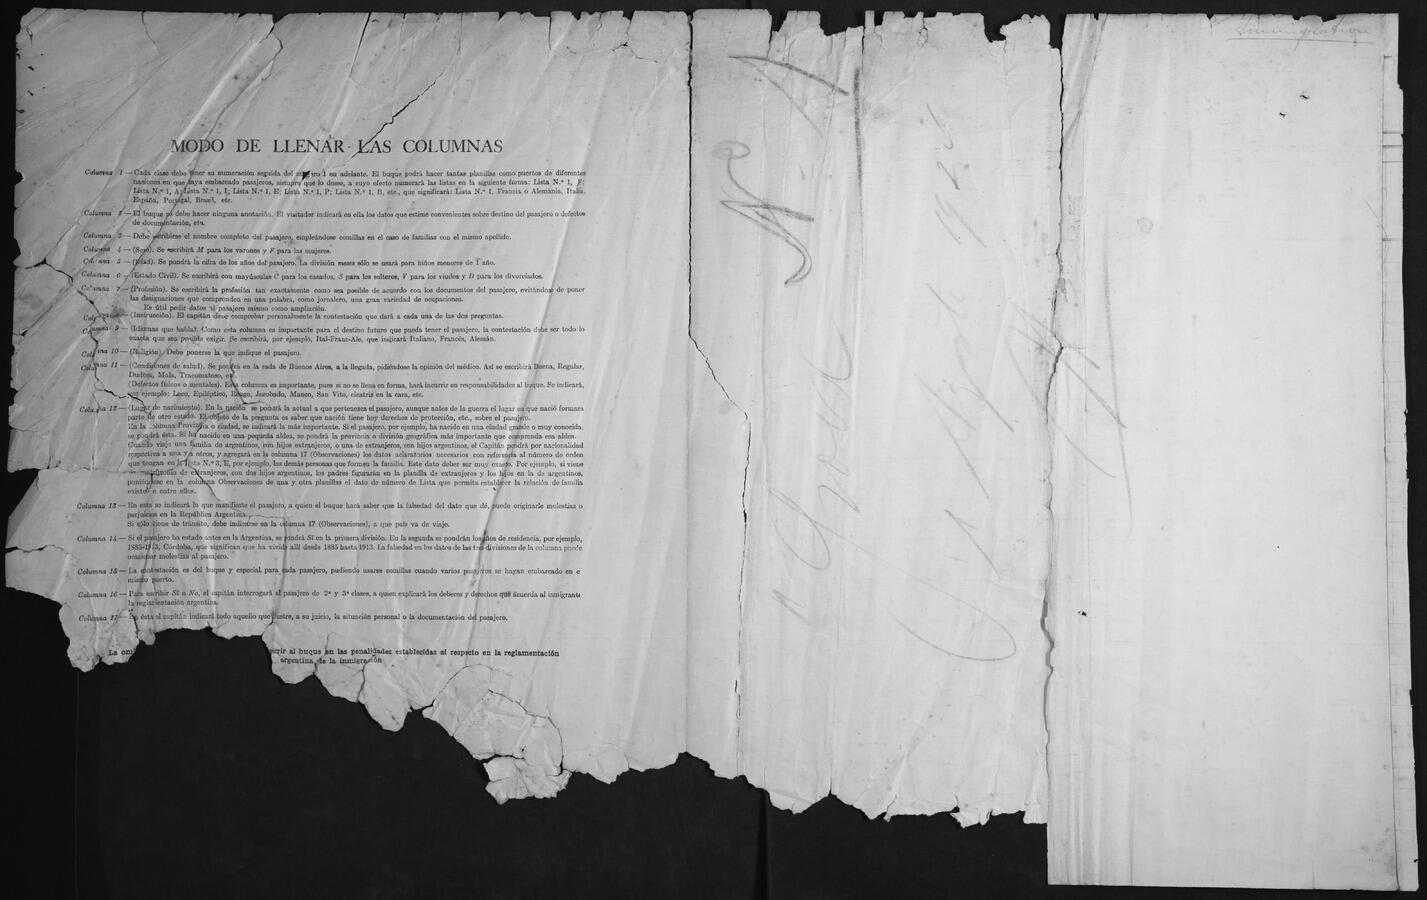 MODO DE LLENAR LAS COLUMNAS
Columna 1 — Cada clase debe tener su numeración seguida del número 1 en adelante. El buque podrá hacer tantas planillas como puertos de diferentes
naciones en que haya embarcado pasajeros, siempre que lo desee, a cuyo efecto numerará las listas en la siguiente forma: Lista N.º 1, F;
Lista N.º 1, A; Lista N.º 1, I; Lista N.º 1, E; Lista N.º 1, P; Lista N.º 1, B, etc., que significará: Lista N.º 1, Francia o Alemania, Italia,
España, Portugal, Brasil, etc.
Columna 2 — El buque no debe hacer ninguna anotación. El visitador indicará en ella los datos que estime convenientes sobre destino del pasajero o defectos
de documentación, etc.
Columna 3 — Debe escribirse el nombre completo del pasajero, empleándose comillas en el caso de familias con el mismo apellido.
Columna 4 — (Sexo). Se escribirá M para los varones y F para las mujeres.
Columna 5 — (Edad). Se pondrá la cifra de los años del pasajero. La división meses sólo se usará para niños menores de 1 año.
Columna 6 — (Estado Civil). Se escribirá con mayúsculas C para los casados, S para los solteros, V para los viudos y D para los divorciados.
Columna 7 — (Profesión). Se escribirá la profesión tan exactamente como sea posible de acuerdo con los documentos del pasajero, evitándose de poner
las designaciones que comprenden en una palabra, como jornalero, una gran variedad de ocupaciones.
Es útil pedir datos al pasajero mismo como ampliación.
— (Instrucción). El capitán debe comprobar personalmente la contestación que dará a cada una de las dos preguntas.
Columna 9 — (Idiomas que habla). Como esta columna es importante para el destino futuro que pueda tener el pasajero, la contestación debe ser todo lo
exacta que sea posible exigir. Se escribirá, por ejemplo, Ital-Franc-Ale, que indicará Italiano, Francés, Alemán.
Columna 10 — (Religión). Debe ponerse la que indique el pasajero.
Columna 11 — (Condiciones de salud). Se pondrá en la rada de Buenos Aires, a la llegada, pidiéndose la opinión del médico. Así se escribirá Buena, Regular,
Dudosa, Mala, Tracomatoso, etc.
(Defectos físicos o mentales). Esta columna es importante, pues si no se llena en forma, hará incurrir en responsabilidades al buque. Se indicará,
por ejemplo: Loco, Epiléptico, Rengo, Jorobado, Manco, San Vito, cicatriz en la cara, etc.
Columna 12 — (Lugar de nacimiento). En la nación se pondrá la actual a que pertenezca el pasajero, aunque antes de la guerra el lugar en que nació formara
parte de otro estado. El objeto de la pregunta es saber que nación tiene hoy derechos de protección, etc., sobre el pasajero.
En la columna Provincia o ciudad, se indicará la más importante. Si el pasajero, por ejemplo, ha nacido en una ciudad grande o muy conocida.
se pondrá ésta. Si ha nacido en una pequeña aldea, se pondrá la provincia o división geográfica más importante que comprenda esa aldea.
Cuando viaje una familia de argentinos, con hijos extranjeros, o una de extranjeros, con hijos argentinos, el Capitán pondrá por nacionalidad
respectiva a una y a otros, y agregará en la columna 17 (Observaciones) los datos aclaratorios necesarios con referencia al número de orden
que tengan en la lista N.º 3, E, por ejemplo, las demás personas que formen la familia. Este dato deber ser muy exacto. Por ejemplo, si viene
matrimonio de extranjeros, con dos hijos argentinos, los padres figurarán en la planilla de extranjeros y los hijos en la de argentinos,
poniéndose en la columna Observaciones de una y otra planillas el dato de número de Lista que permita establecer la relación de familia
existente entre ellos.
Columna 13 — En esta se indicará lo que manifieste el pasajero, a quien el buque hará saber que la falsedad del dato que dé, puede originarle molestias o
perjuicios en la República Argentina.
Si sólo viene de tránsito, debe indicarse en la columna 17 (Observaciones), a que país va de viaje.
Columna 14 — Si el pasajero ha estado antes en la Argentina, se pondrá Si en la primera división. En la segunda se pondrán los años de residencia, por ejemplo,
1885-1913, Córdoba, que significan que ha vivido allí desde 1885 hasta 1913. La falsedad en los datos de las tres divisiones de la columna puede
ocasionar molestias al pasajero.
Columna 15 — La contestación es del buque y especial para cada pasajero, pudiendo usarse comillas cuando varios pasajeros se hayan embarcado en e
mismo puerto.
Columna 16 — Para escribir Si o No, el capitán interrogará al pasajero de 2ª y 3ª clases, a quien explicará los deberes y derechos que acuerda al inmigrante
la reglamentación argentina.
Columna 17 — En ésta el capitán indicará todo aquello que ilustre, a su juicio, la situación personal o la documentación del pasajero.
La omi
rrir al buque en las penalidades establecidas al respecto en la reglamentación
argentina de la inmigración
Immigration